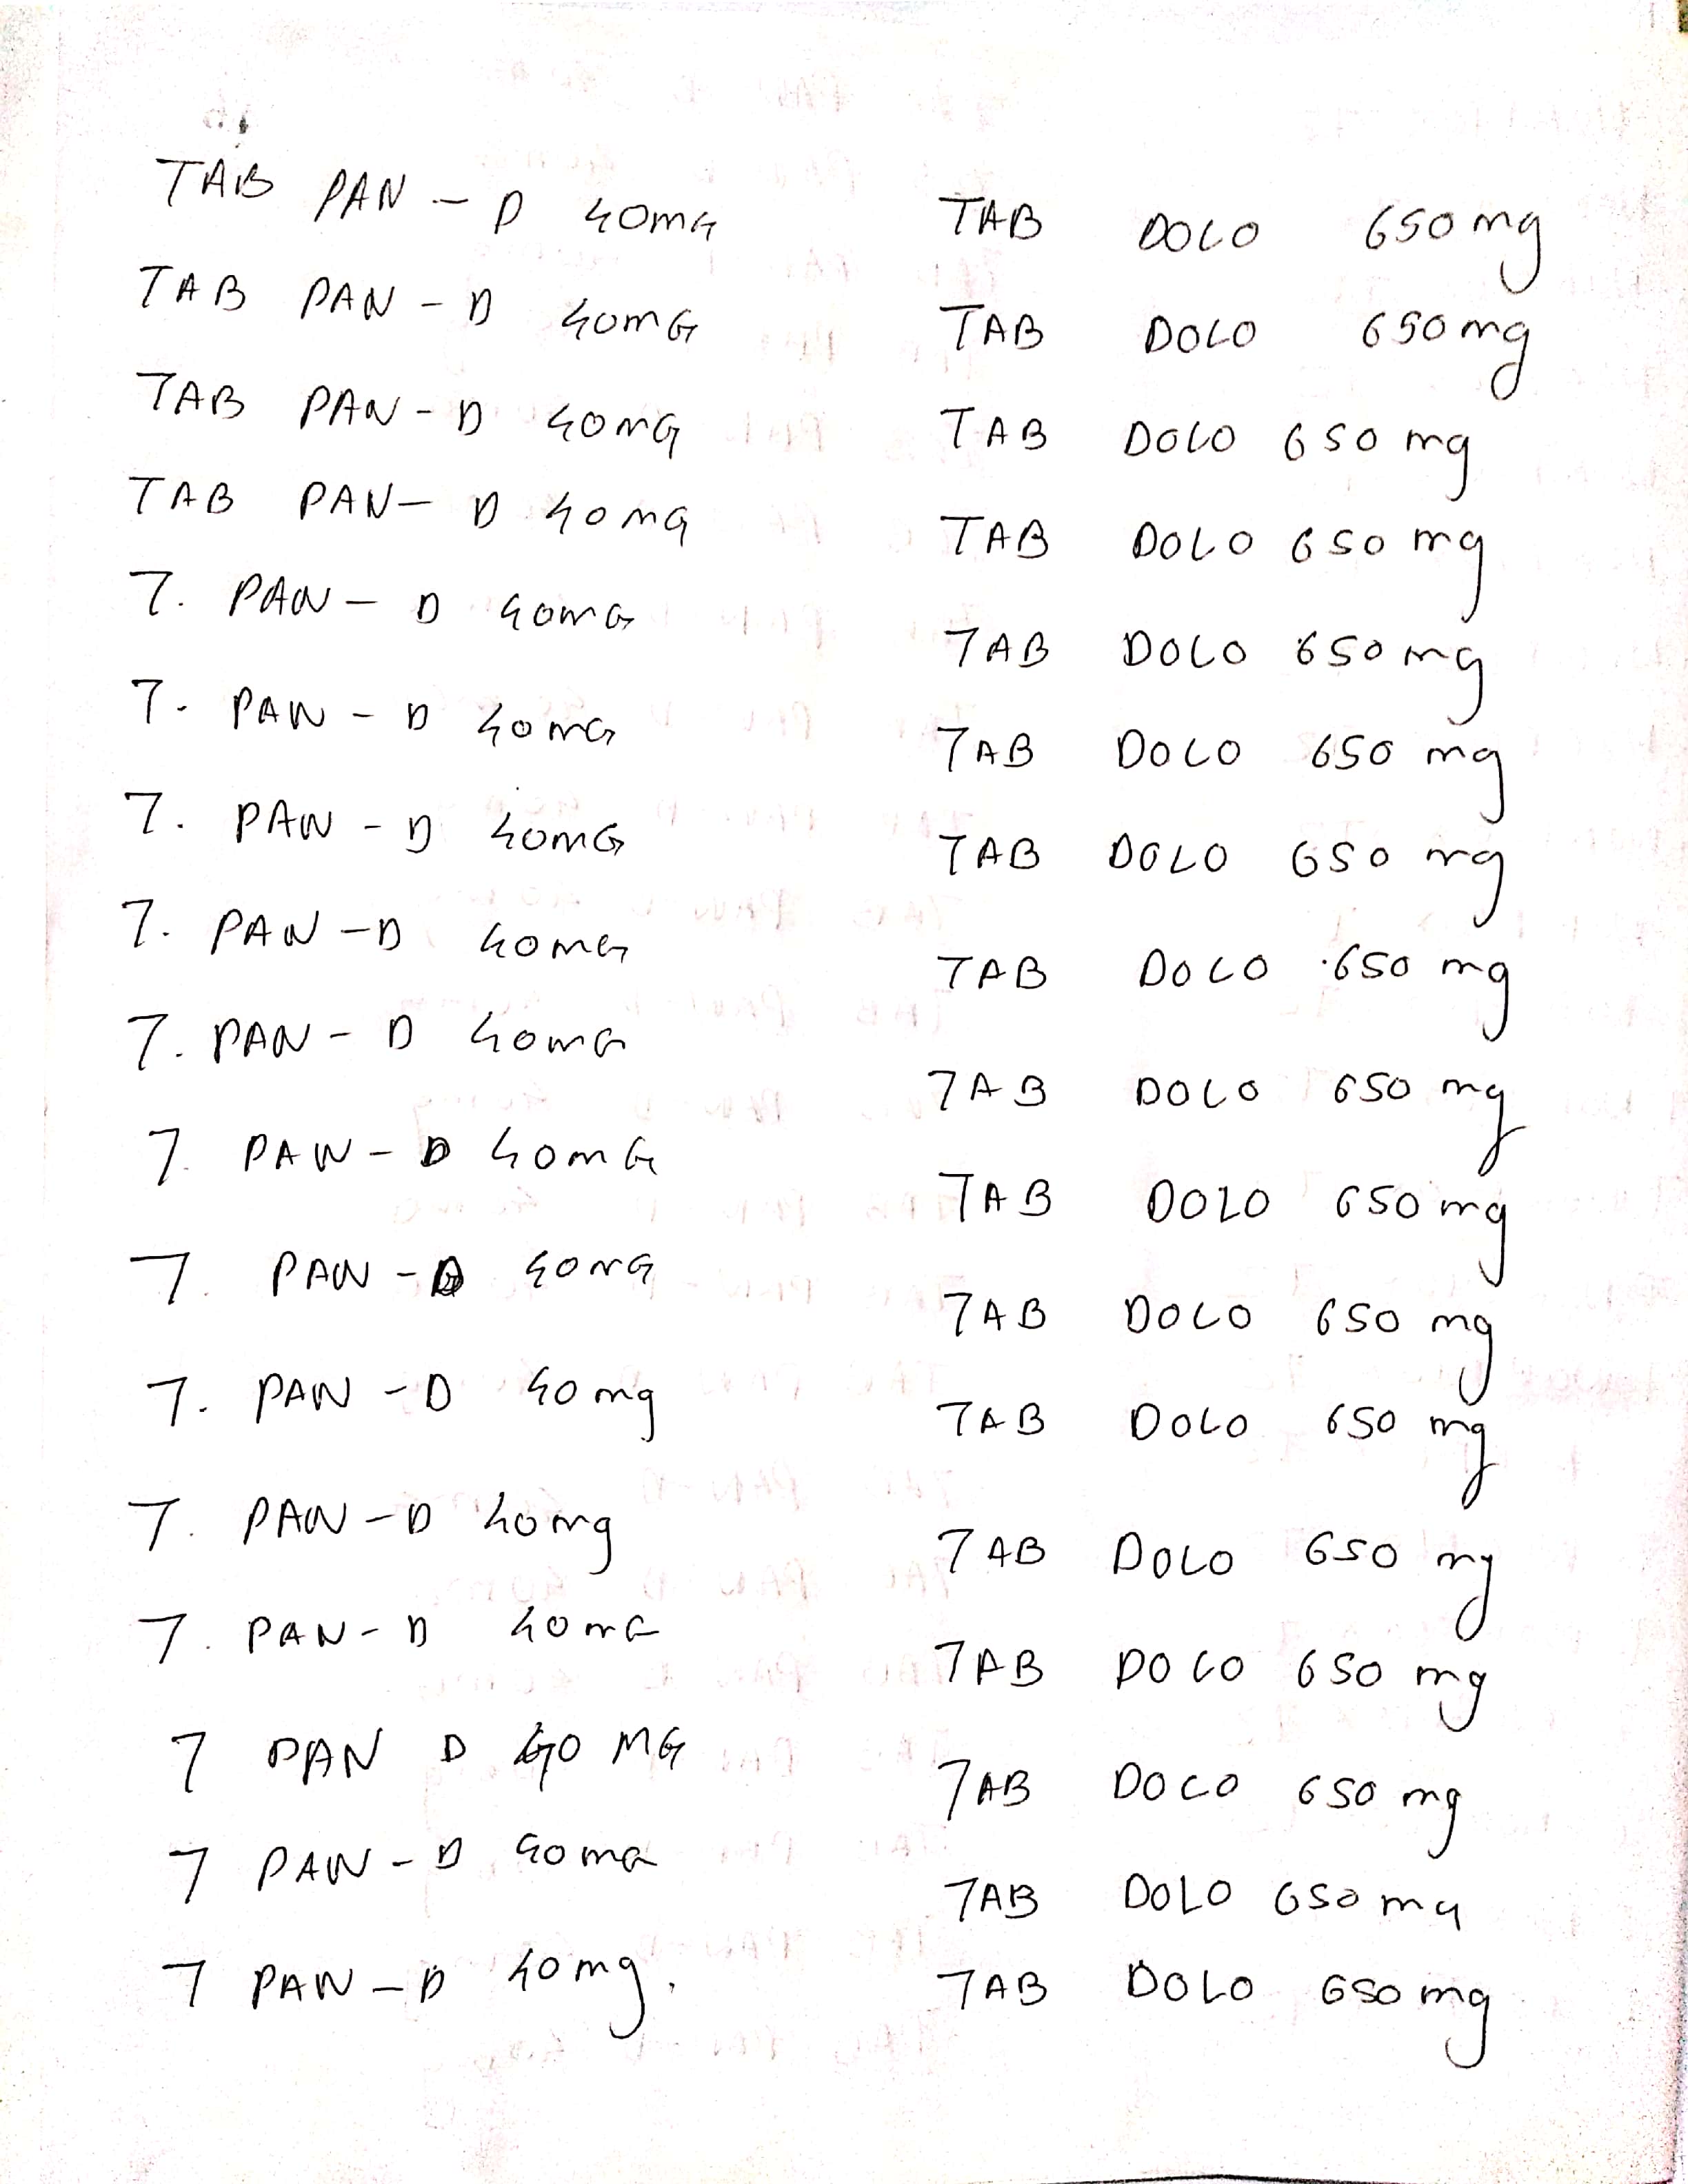 TAB PAN - D 40mG
TAB PAN - D 40mG
TAB PAN - D 40mG
TAB PAN - D 40mG
T. PAN - D 40mG
T. PAN - D 40mG
T. PAN - D 40mG
T. PAN - D 40mG
T. PAN - D 40mG
T. PAN - D 40mG
T. PAN - D 40mG
T. PAN - D 40mg
T. PAN - D 40mg
T. PAN - D 40mG
T PAN D 40 MG
T PAN - D 40mG
T PAN - D 40mg.
TAB DOLO 650mg
TAB DOLO 650mg
TAB DOLO 650 mg
TAB DOLO 650 mg
TAB DOLO 650mg
TAB DOLO 650 mg
TAB DOLO 650 mg
TAB DOLO 650 mg
TAB DOLO 650 mg
TAB DOLO 650mg
TAB DOLO 650 mg
TAB DOLO 650 mg
TAB DOLO 650 mg
TAB DOLO 650 mg
TAB DOLO 650 mg
TAB DOLO 650mg
TAB DOLO 650mg